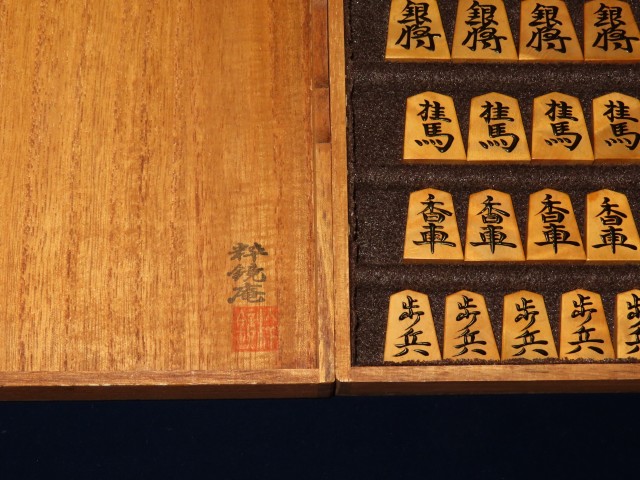 粋鏡庵
銀将 銀将 銀将 銀将
桂馬 桂馬 桂馬 桂馬
香車 香車 香車 香車
歩兵 歩兵 歩兵 歩兵